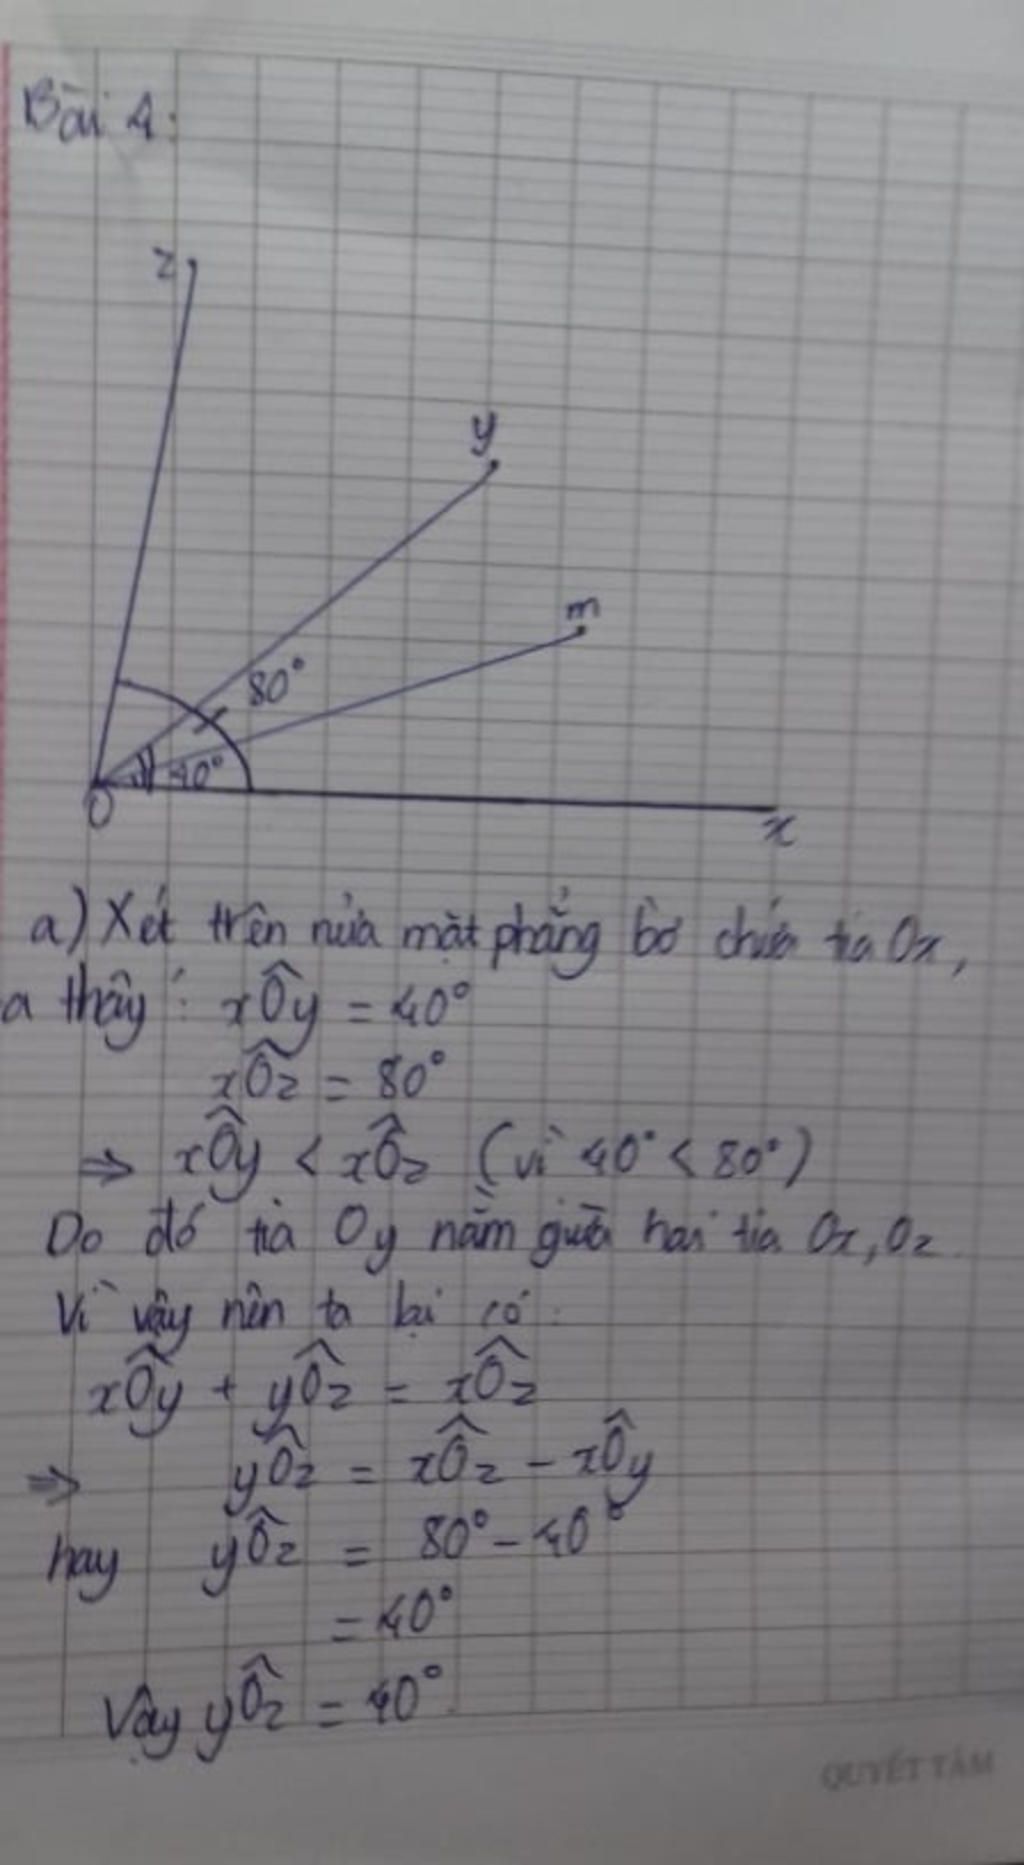 Bài 4:
z
y
m
80°
40°
O
x
a) Xét trên nửa mặt phẳng bờ chứa tia Ox,
a thấy: xÔy = 40°
xÔz = 80°
⇒ xÔy < xÔz (vì 40° < 80°)
Do đó tia Oy nằm giữa hai tia Ox, Oz
Vì vậy nên ta lại có:
xÔy + yÔz = xÔz
⇒ yÔz = xÔz - xÔy
hay yÔz = 80° - 40°
= 40°
Vậy yÔz = 40°.
QUYẾT TÂM